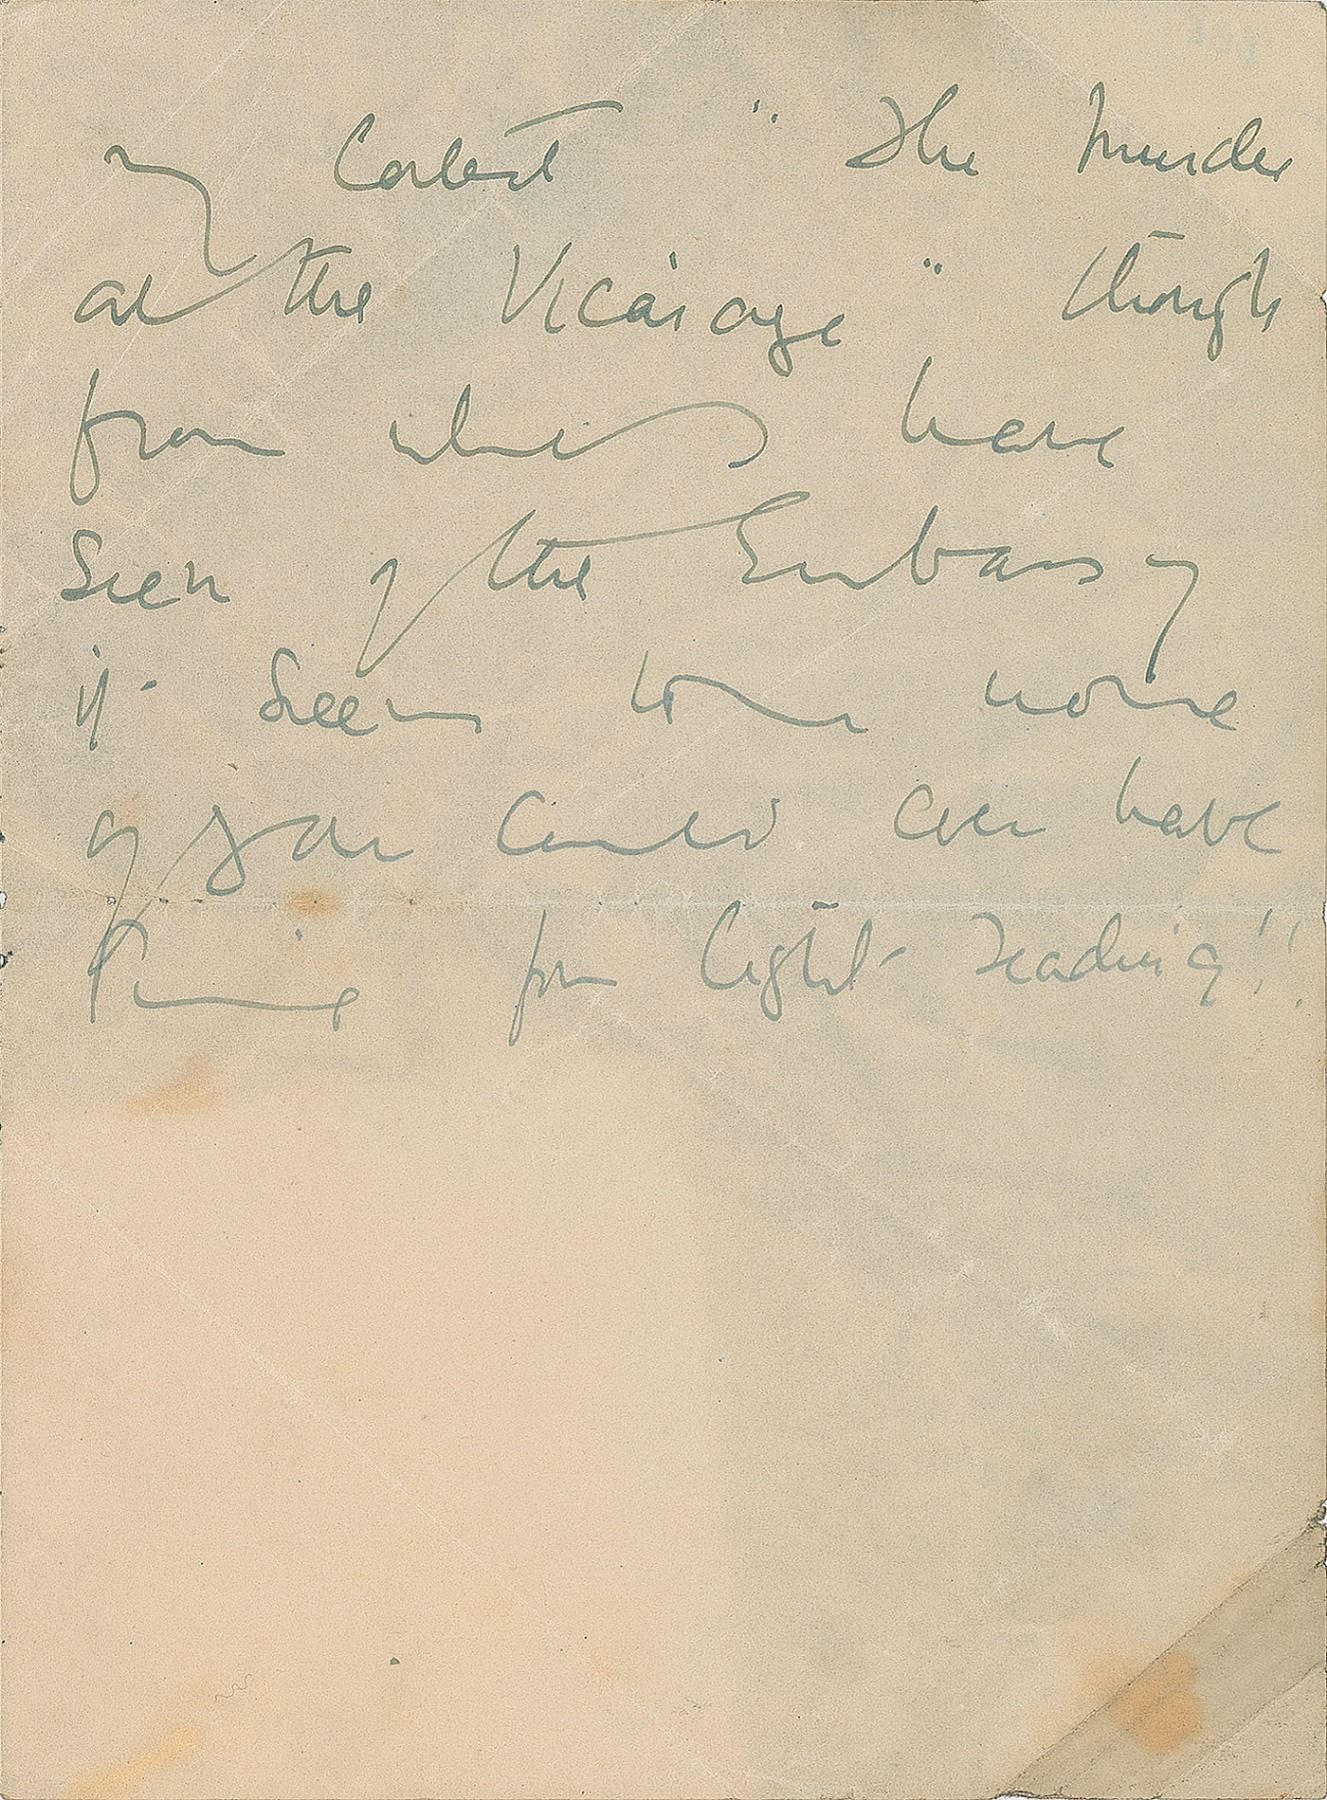 my latest "The Murder
at the Vicarage" though
from what I have
seen of the Embassy
it seems to me none
of you could ever have
time for light reading!!